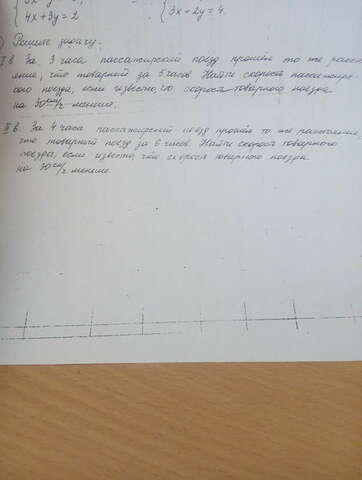 4x+3y=2 3x-2y=4.
Решите задачу.
I в. За 3 часа пассажирский поезд прошёл то же рассто-
яние, что товарный за 5 часов. Найти скорость пассажирс-
кого поезда, если известно, что скорость товарного поезда
на 30 км/ч меньше.
II в. За 4 часа пассажирский поезд прошёл то же расстояние,
что товарный поезд за 6 часов. Найти скорость товарного
поезда, если известно, что скорость товарного поезда
на 20 км/ч меньше.